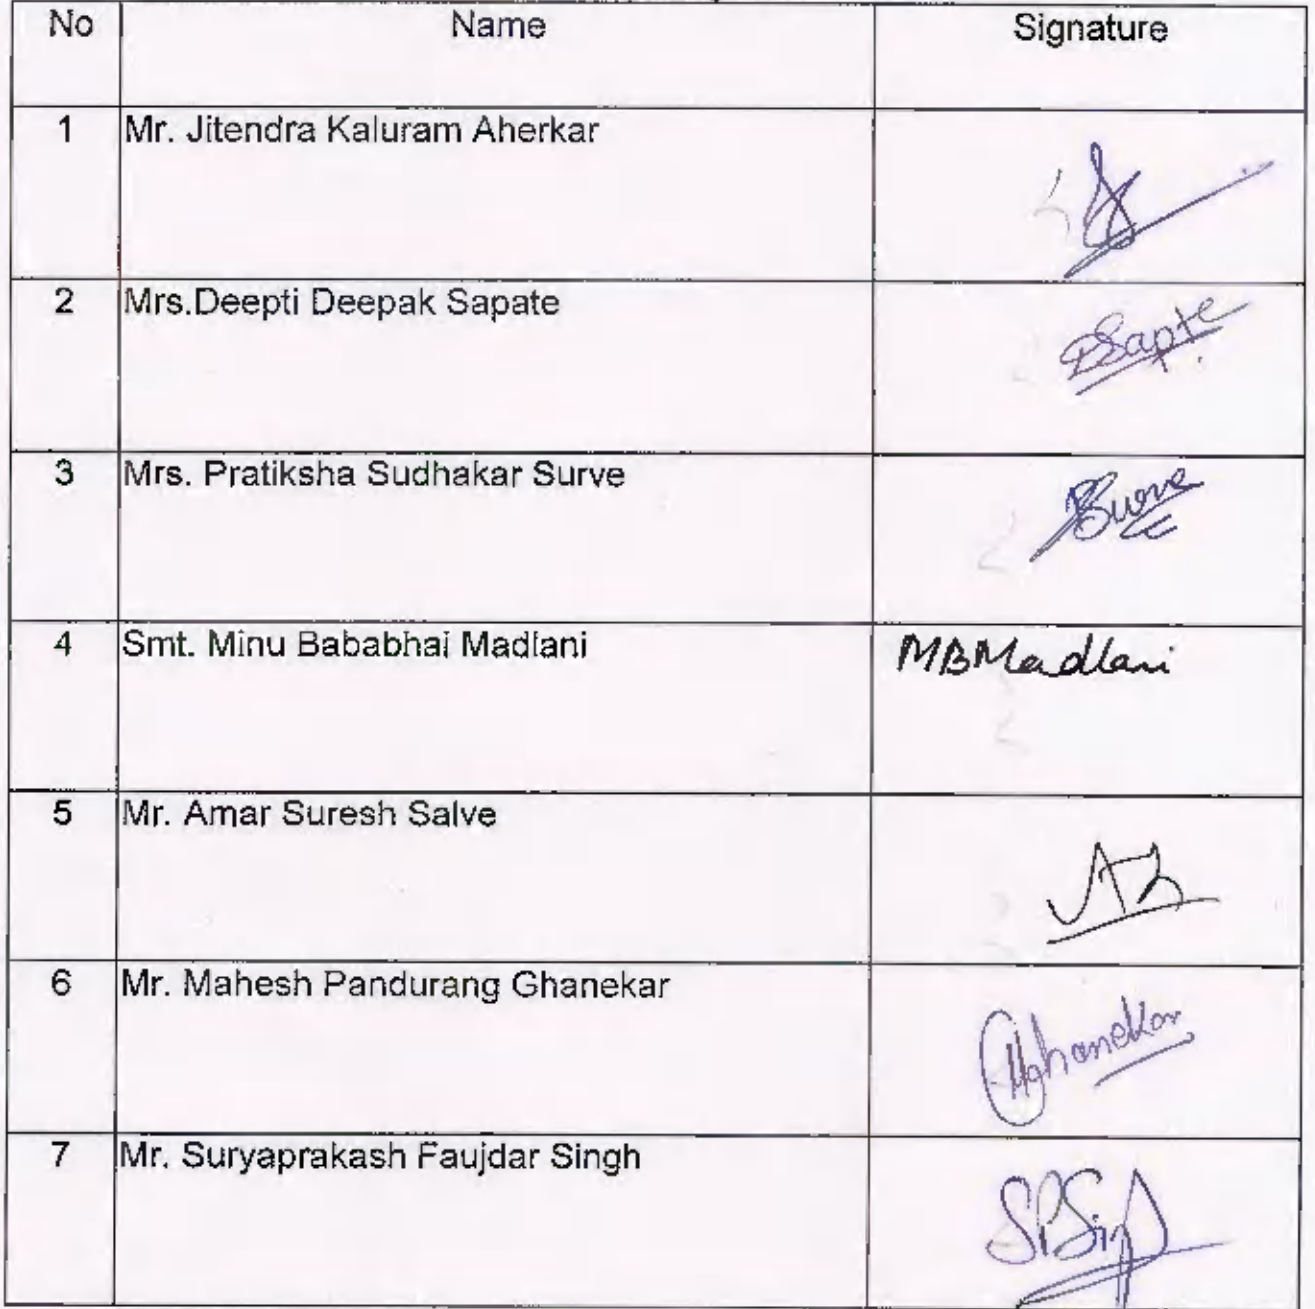 No Name Signature
1 Mr. Jitendra Kaluram Aherkar
2 Mrs.Deepti Deepak Sapate DSapte
3 Mrs. Pratiksha Sudhakar Surve PSurve
4 Smt. Minu Bababhai Madlani MBMadlani
5 Mr. Amar Suresh Salve
6 Mr. Mahesh Pandurang Ghanekar MGhanekar
7 Mr. Suryaprakash Faujdar Singh SPSingh